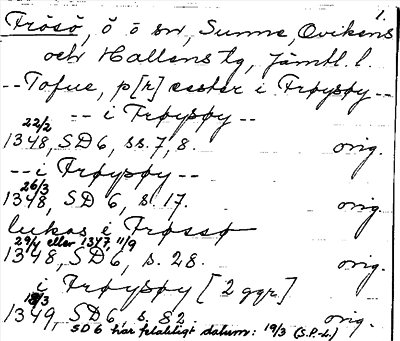 1.
Frösö, ö o sn, Sunne, Ovikens
och Hallens tg, Jämtl. l.
--Tofue, p[r]esster i Frøysøy--
-- i Frøysøy --
1348 22/2, SD 6, ss. 7, 8. orig.
-- i Frøysøy --
1348 26/3, SD 6, s. 17. orig.
lukas i Frøssø
1348 29/4 eller 1347, 11/9, SD 6, s. 28. orig.
i Frøysøy [2 ggr]
1349 18/3, SD 6, s. 82. orig.
SD 6 har felaktigt datum: 19/3 (S.P-L.)